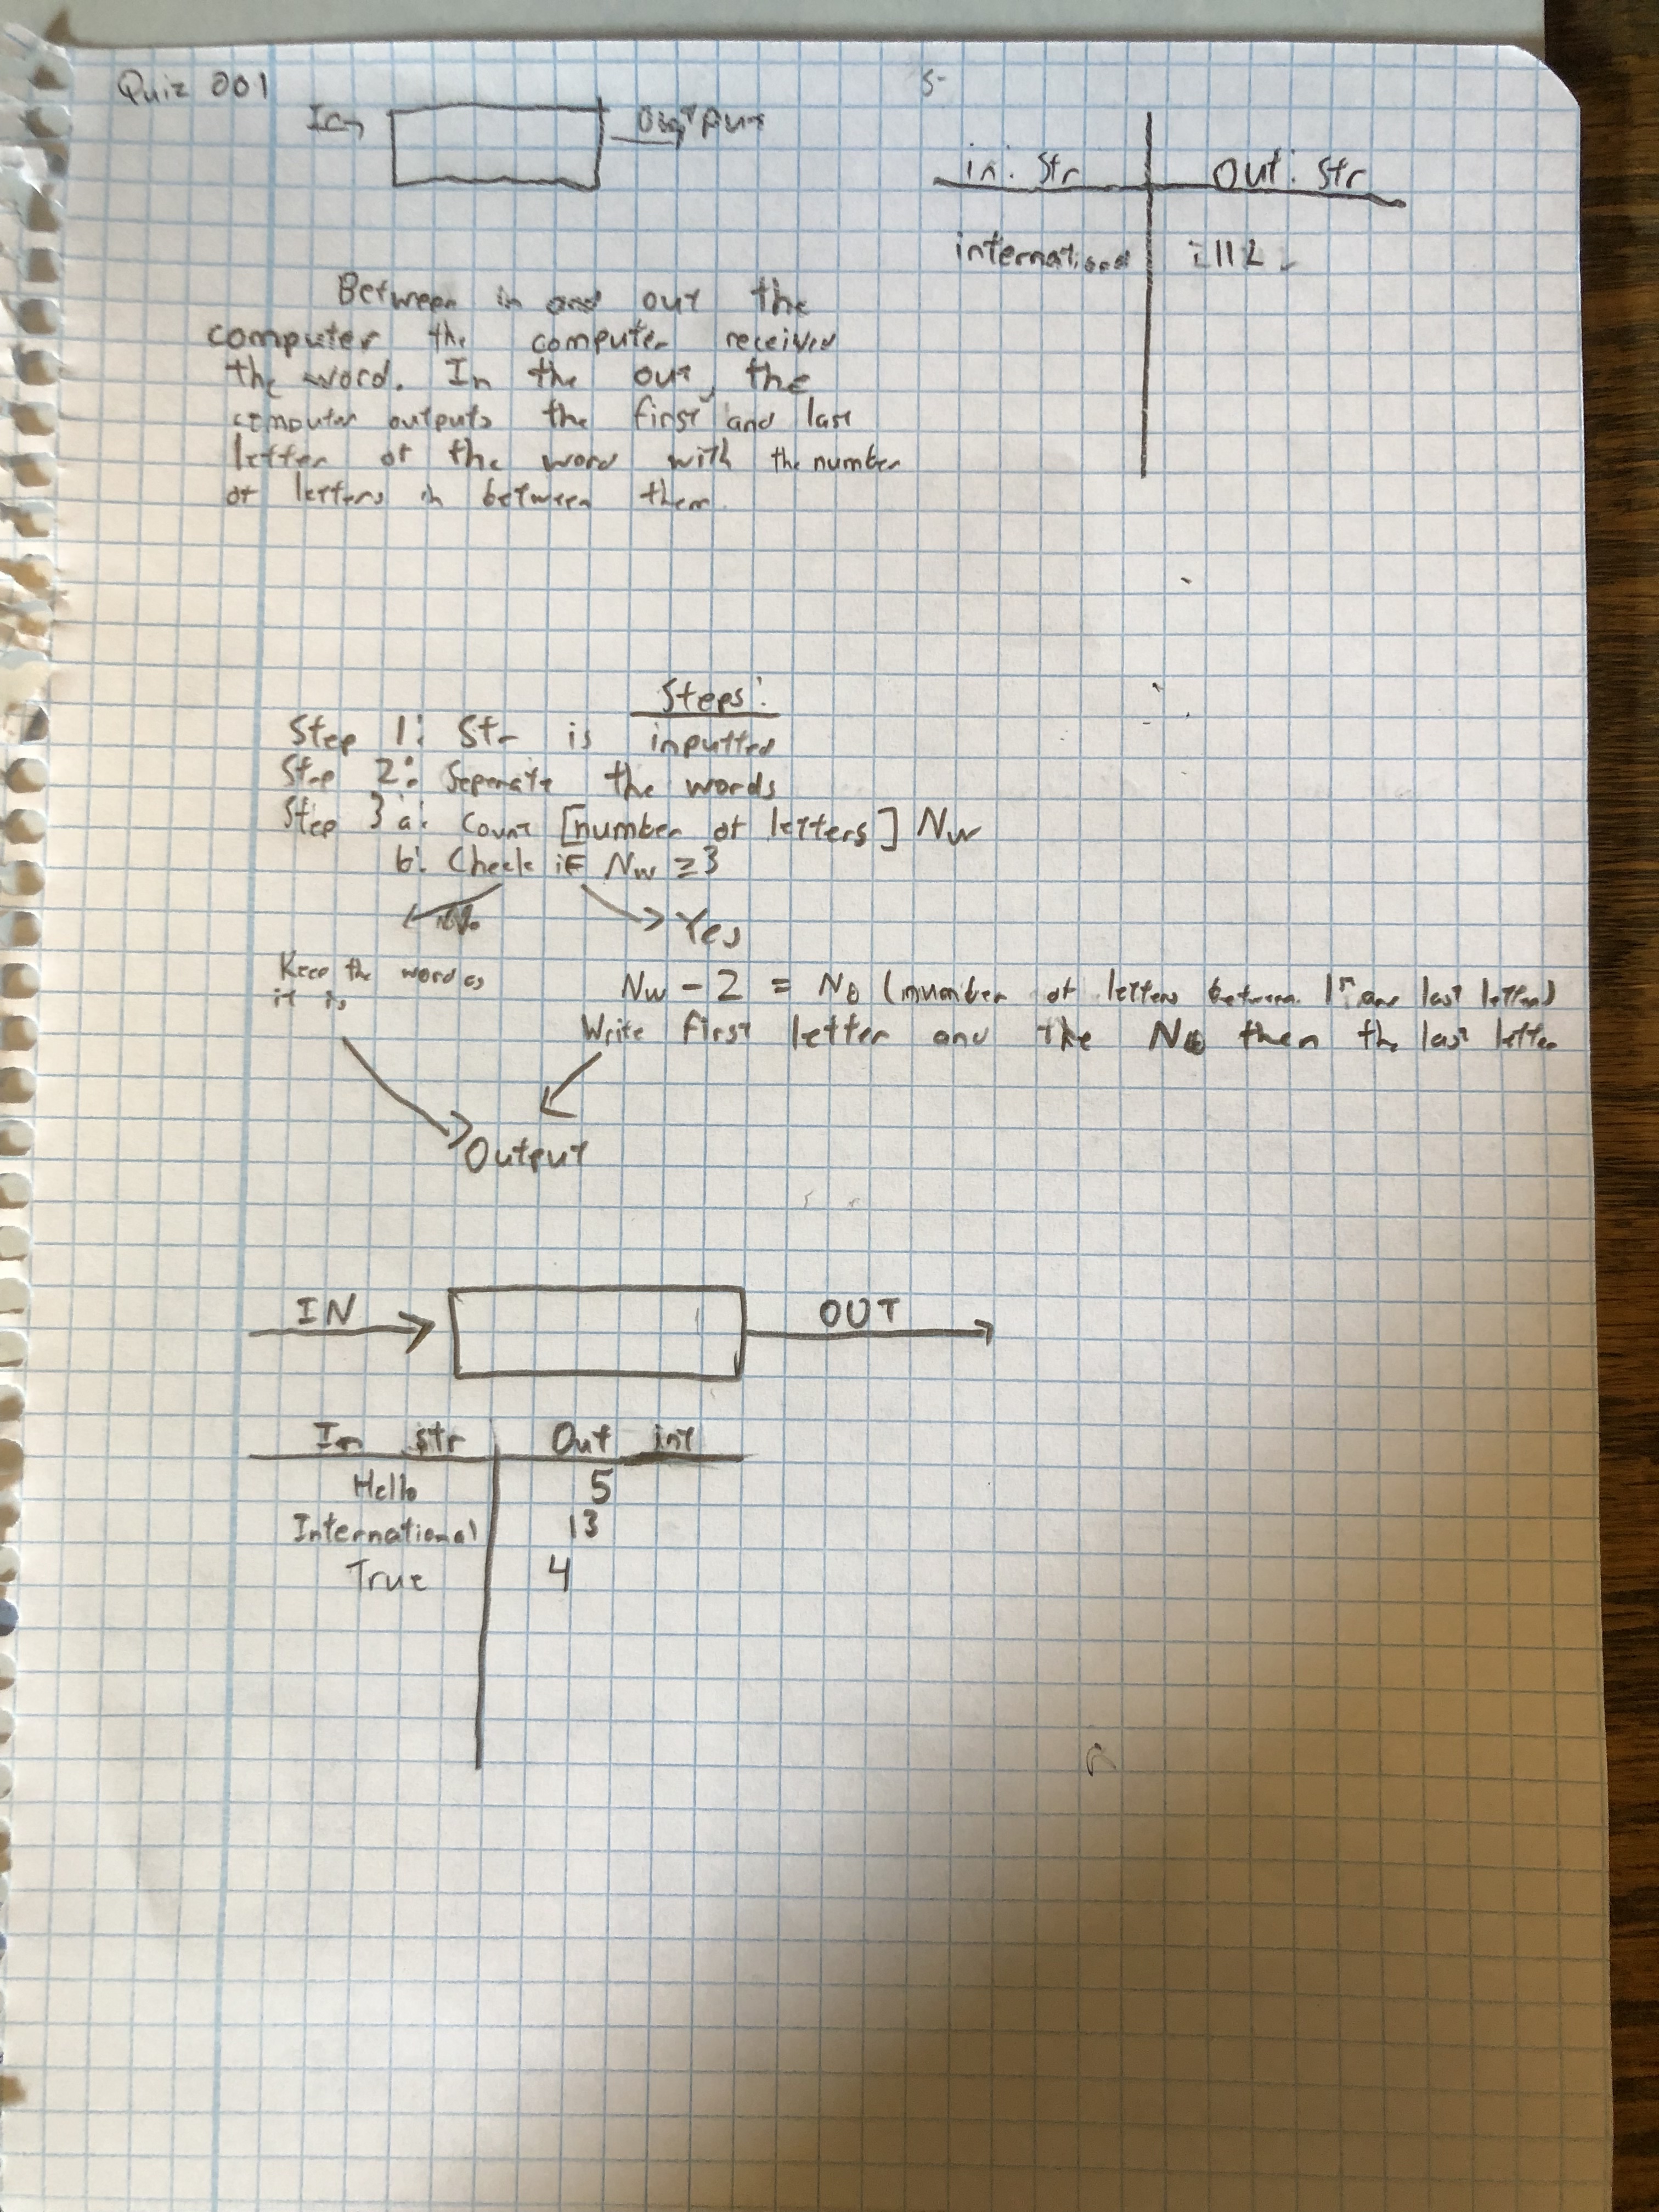 Quiz 001
In
Output
in: Str
Out: Str
international
i11L
Between in and out the
computer the computer received
the word. In the out, the
computer outputs the first and last
letter of the word with the number
of letters in between them.
Steps:
Step 1: Str is inputted
Step 2: Seperate the words
Step 3 a: Count [number of letters] Nw
b: Check if Nw ≥ 3
No
Yes
Keep the word as
it is
Nw - 2 = No (number of letters between 1st and last letter)
Write first letter and the No then the last letter
Output
IN
OUT
In str
Out int
Hello 5
International 13
True 4